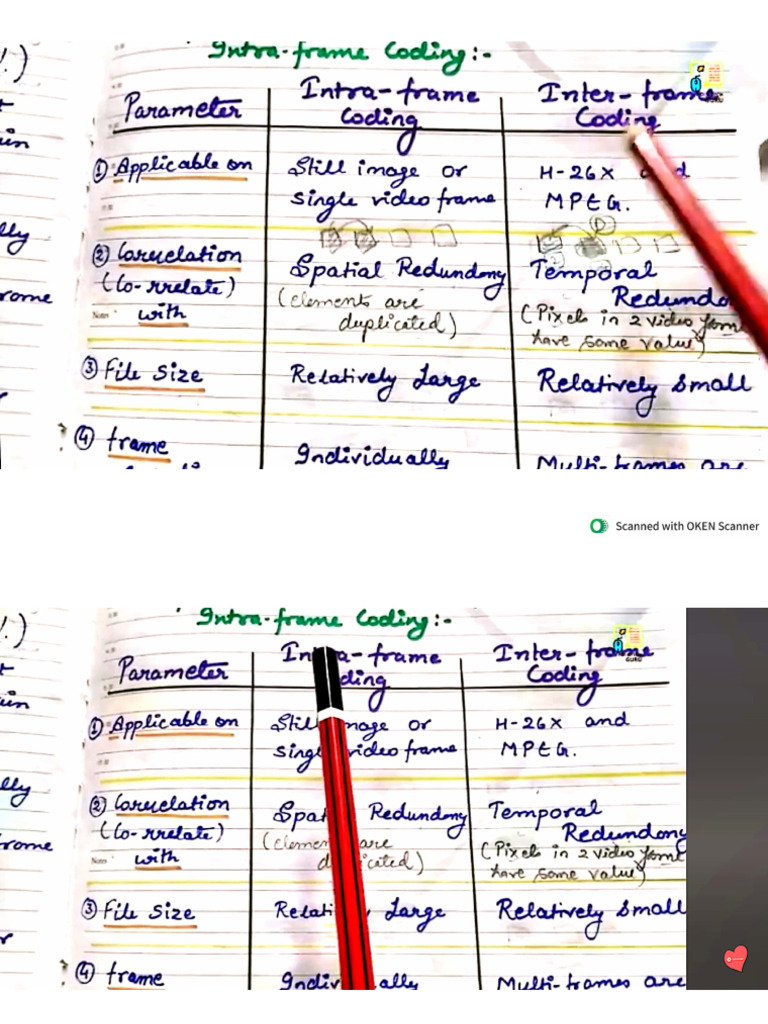 Intra-frame Coding:-
Parameter
Intra-frame Coding
Inter-frame Coding
① Applicable on
Still image or
single video frame
H-26X and
MPEG.
② Coruelation
(Co-rrelate)
with
Spatial Redundony
(elements are
duplicated)
Temporal
Redundo
(Pixels in 2 video frame
have some value)
③ File Size
Relatively Large
Relatively Small
④ frame
Individually
Multi-frames are
Scanned with OKEN Scanner
Intra-frame Coding:-
Parameter
Intra-frame
Coding
Inter-frame
Coding
① Applicable on
Still image or
single video frame
H-26X and
MPEG.
② Coruelation
(Co-rrelate)
with
Redundony
are
Temporal
Redundony
(Pixels in 2 video frame
have some value)
③ File Size
Large
Relatively Small
④ frame
Multi-frames are